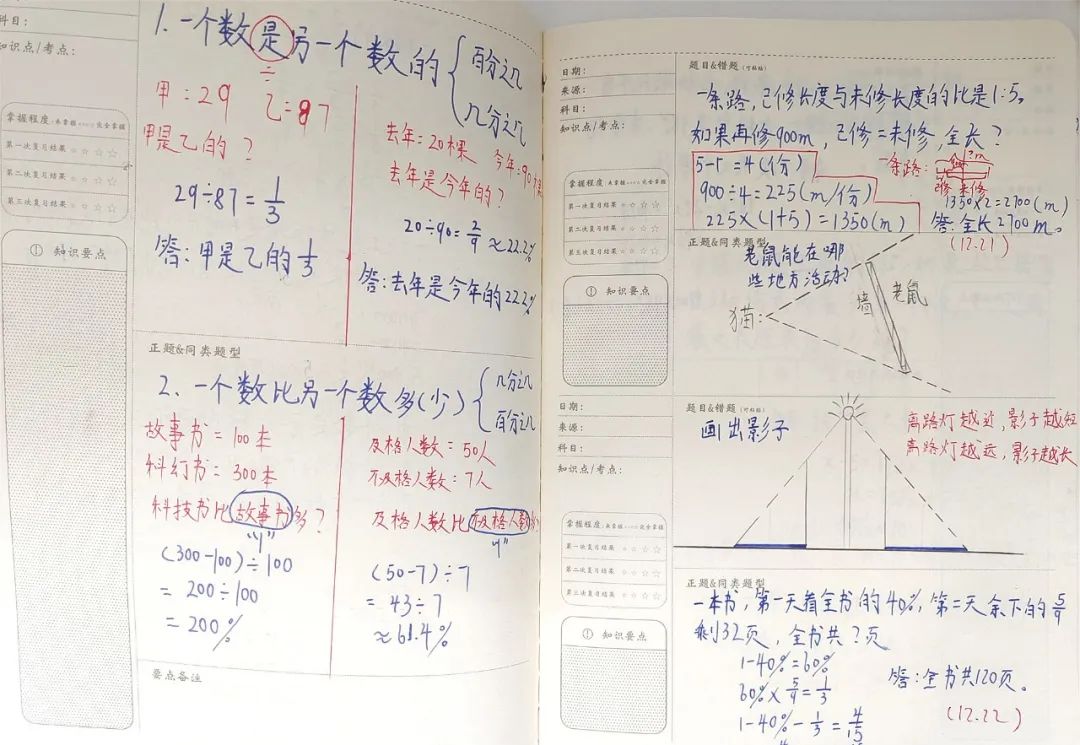 科目：
知识点/考点：
掌握程度：未掌握 完全掌握
第一次复习结果 ☆ ☆ ☆ ☆
第二次复习结果 ☆ ☆ ☆ ☆
第三次复习结果 ☆ ☆ ☆ ☆
① 知识要点
1. 一个数是另一个数的 { 百分之几
几分之几
÷
甲：29 乙=87
甲是乙的？
29÷87=1/3
答：甲是乙的1/3
去年：20棵 今年：90棵
去年是今年的？
20÷90=2/9≈22.2%
答：去年是今年的22.2%
正题&同类题型
2. 一个数比另一个数多(少) { 几分之几
百分之几
故事书=100本
科幻书=300本
科技书比故事书多？
"1"
(300-100)÷100
=200÷100
=200%
及格人数=50人
不及格人数：7人
及格人数比不及格人数多
"1"
(50-7)÷7
=43÷7
≈61.4%
要点备注
日期：
来源：
科目：
知识点/考点：
掌握程度：未掌握 完全掌握
第一次复习结果 ☆ ☆ ☆ ☆
第二次复习结果 ☆ ☆ ☆ ☆
第三次复习结果 ☆ ☆ ☆ ☆
① 知识要点
题目&错题（可粘贴）
一条路，已修长度与未修长度的比是1:5。
如果再修900m，已修=未修，全长？
5-1=4(份)
900÷4=225(m/份)
225×(1+5)=1350(m)
一条路：
?m
已修 未修
1350×2=2700(m)
答：全长2700m。
(12.21)
正题&同类题型
老鼠能在哪
些地方活动？
猫：
墙
老鼠
日期：
来源：
科目：
知识点/考点：
掌握程度：未掌握 完全掌握
第一次复习结果 ☆ ☆ ☆ ☆
第二次复习结果 ☆ ☆ ☆ ☆
第三次复习结果 ☆ ☆ ☆ ☆
① 知识要点
题目&错题（可粘贴）
画出影子
离路灯越近，影子越短
离路灯越远，影子越长
正题&同类题型
一本书，第一天看全书的40%，第二天余下的5/9
剩32页，全书共？页
1-40%=60%
60%×5/9=1/3
1-40%-1/3=4/15
答：全书共120页。
(12.22)